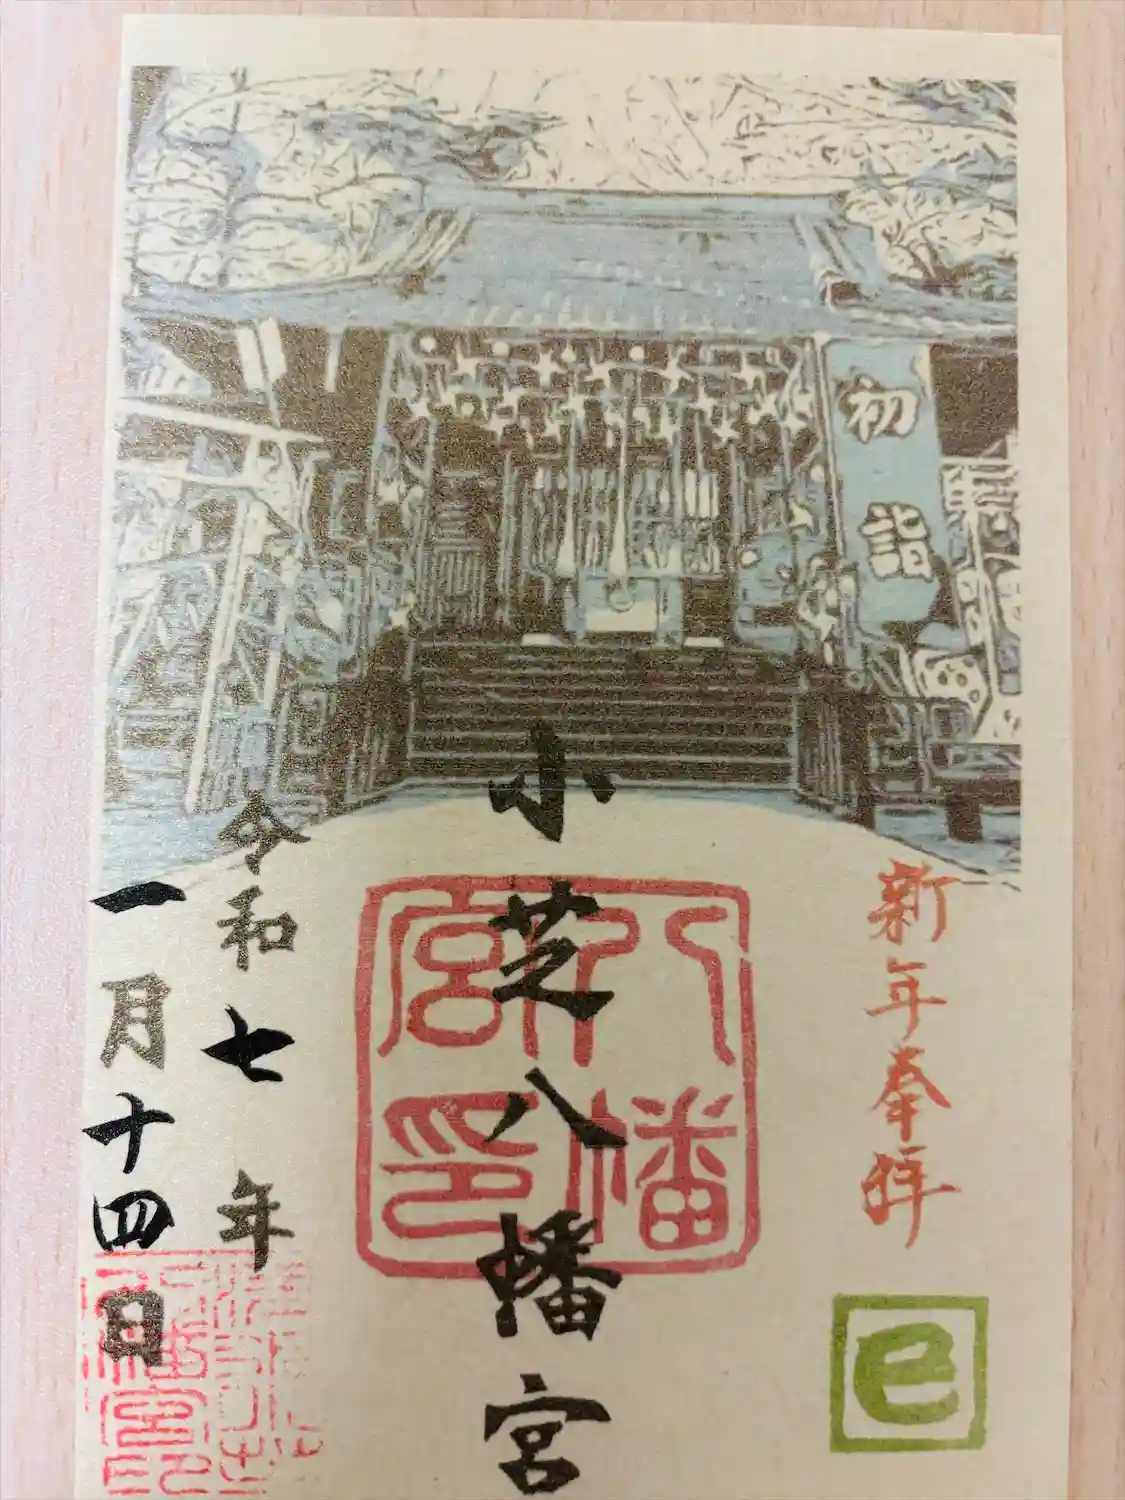 初詣
新年奉拝
巳
小芝八幡宮
八幡
宮印
令和七年
一月十四日